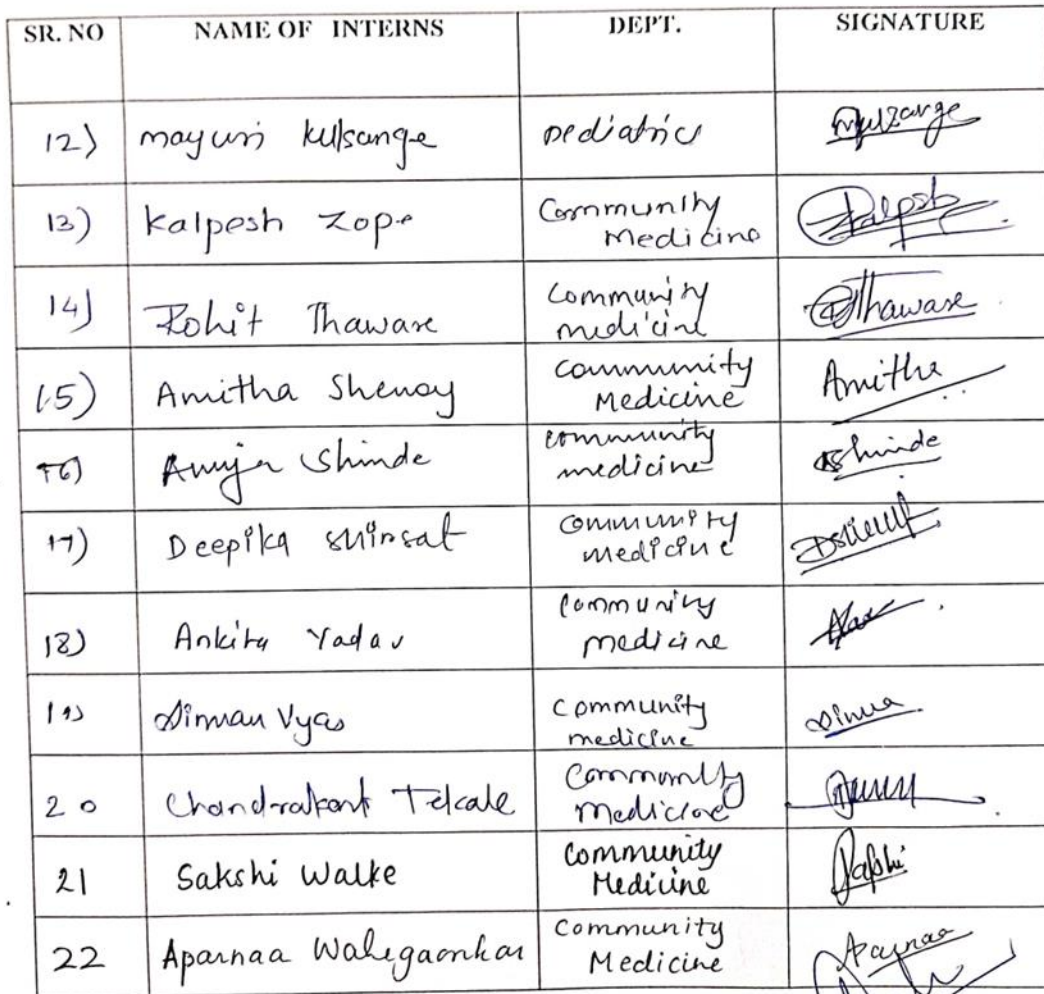 SR. NO NAME OF INTERNS DEPT. SIGNATURE
12) mayuri kulsange pediatrics
13) Kalpesh Zope Community Medicine Kalpesh
14) Rohit Thaware Community medicine Thaware
15) Amitha Shenoy Community Medicine Amitha
16) Anuja Shinde Community medicine Shinde
17) Deepika Shirsat Community medicine
18) Ankita Yadav Community medicine
19) Simran Vyas Community medicine
20 Chandrakant Tekale Community Medicine
21 Sakshi Walke Community Medicine Sakshi
22 Aparnaa Walegaonkar Community Medicine Aparnaa